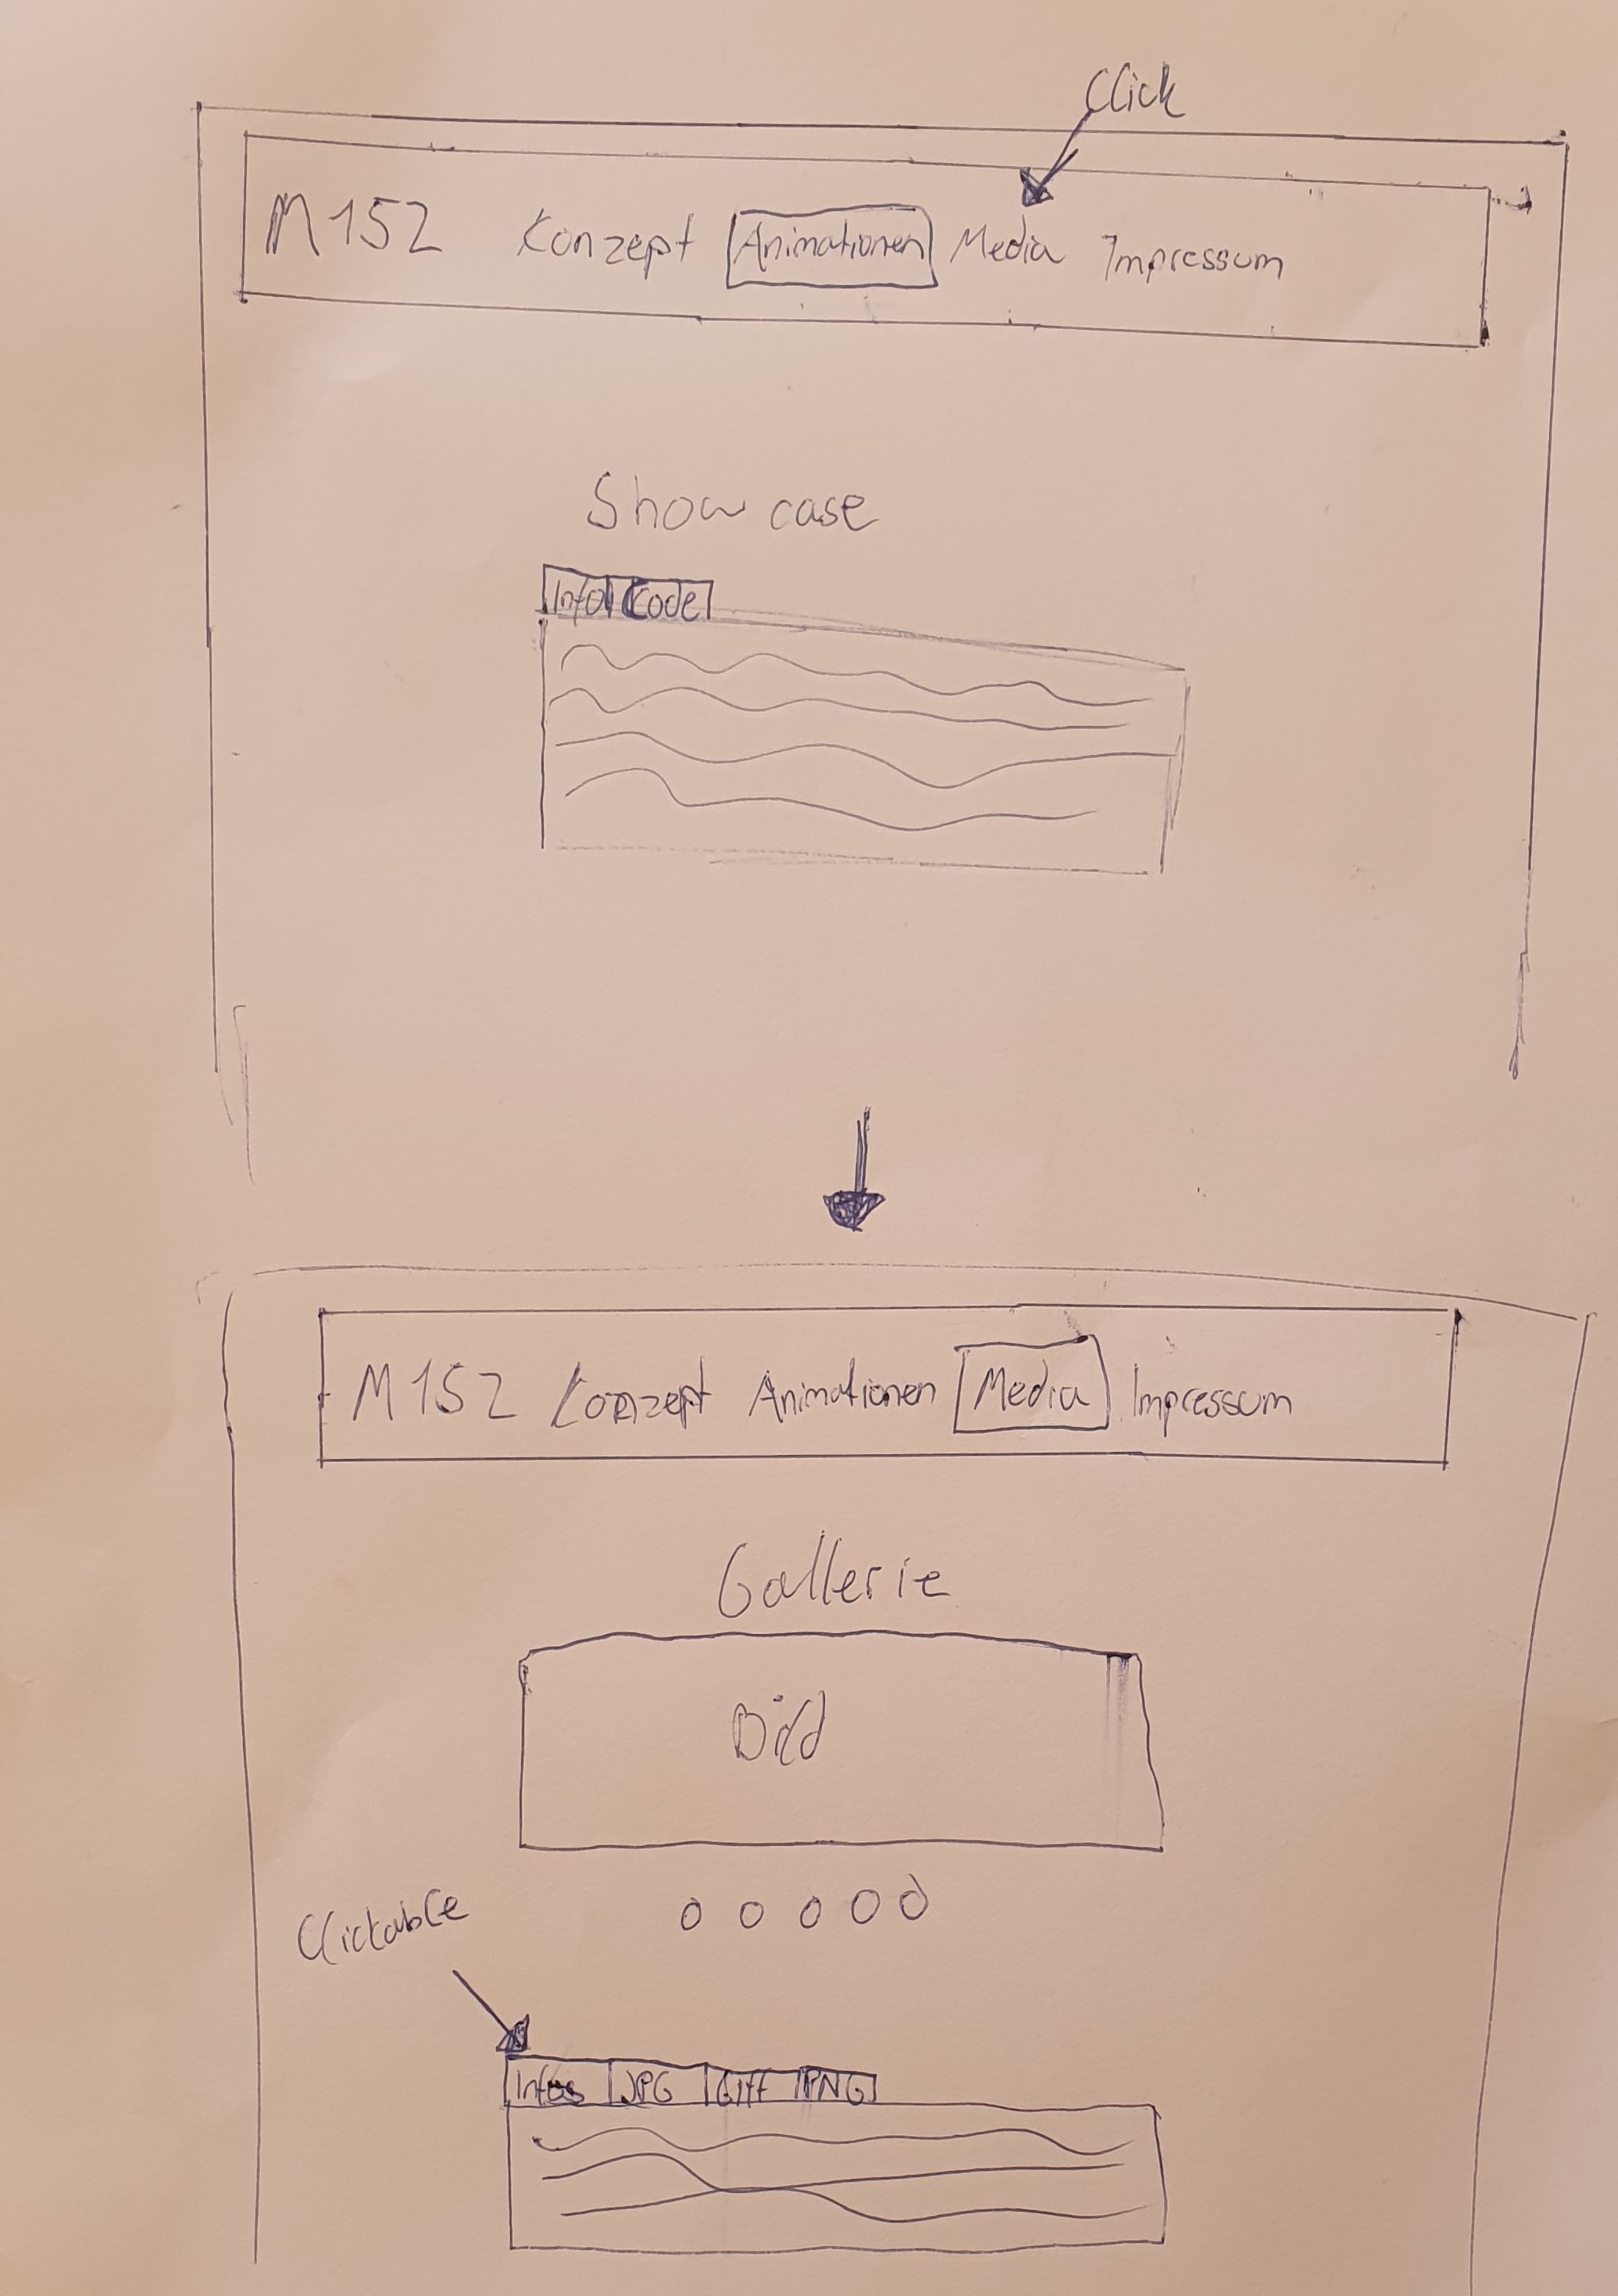 Click
M152 Konzept Animationen Media Impressum
Show case
Info Code
M152 Konzept Animationen Media Impressum
Gallerie
Bild
Clickable
Infos JPG Giff PNG